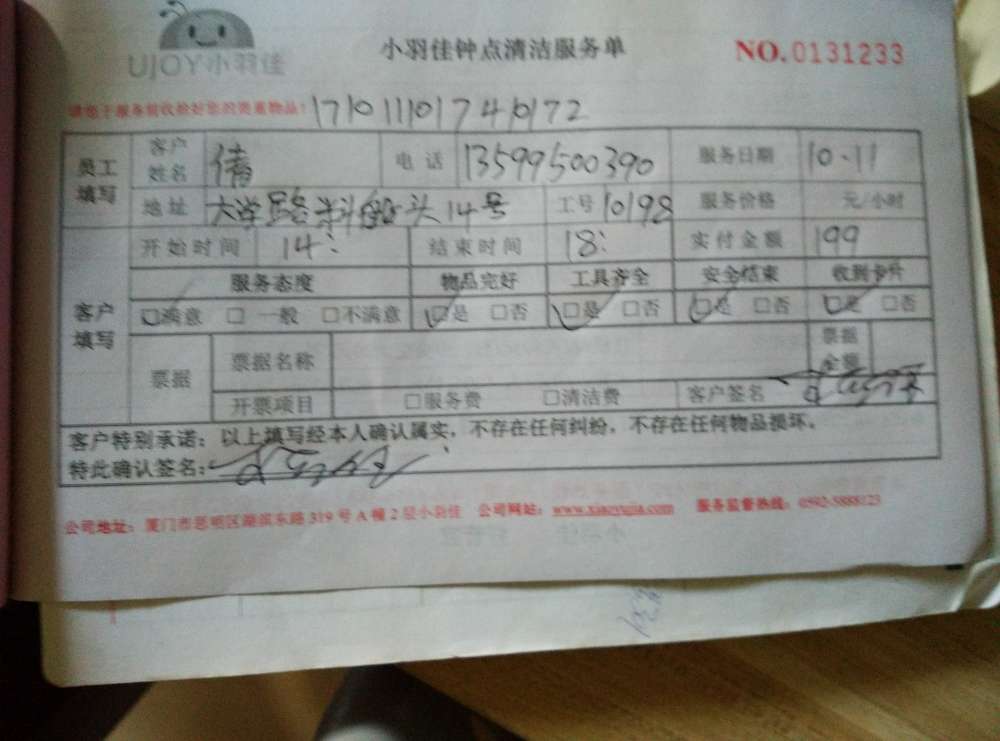 UJOY小羽佳
小羽佳钟点清洁服务单
NO. 0131233
请您于服务前收拾好您的贵重物品! 171011017410172
员工填写 客户姓名 倩 电话 13599500390 服务日期 10.11
地址 大学路 头14号 工号 10198 服务价格 元/小时
客户填写 开始时间 14: 结束时间 18: 实付金额 199
服务态度 物品完好 工具齐全 安全结束 收到卡片
□满意 □一般 □不满意 □是 □否 □是 □否 □是 □否 □是 □否
票据 票据名称 票据金额
开票项目 □服务费 □清洁费 客户签名
客户特别承诺：以上填写经本人确认属实，不存在任何纠纷，不存在任何物品损坏。
特此确认签名：
公司地址：厦门市思明区湖滨东路319号A幢2层小羽佳 公司网站：www.xiaoyujia.com 服务监督热线：0592-5888123